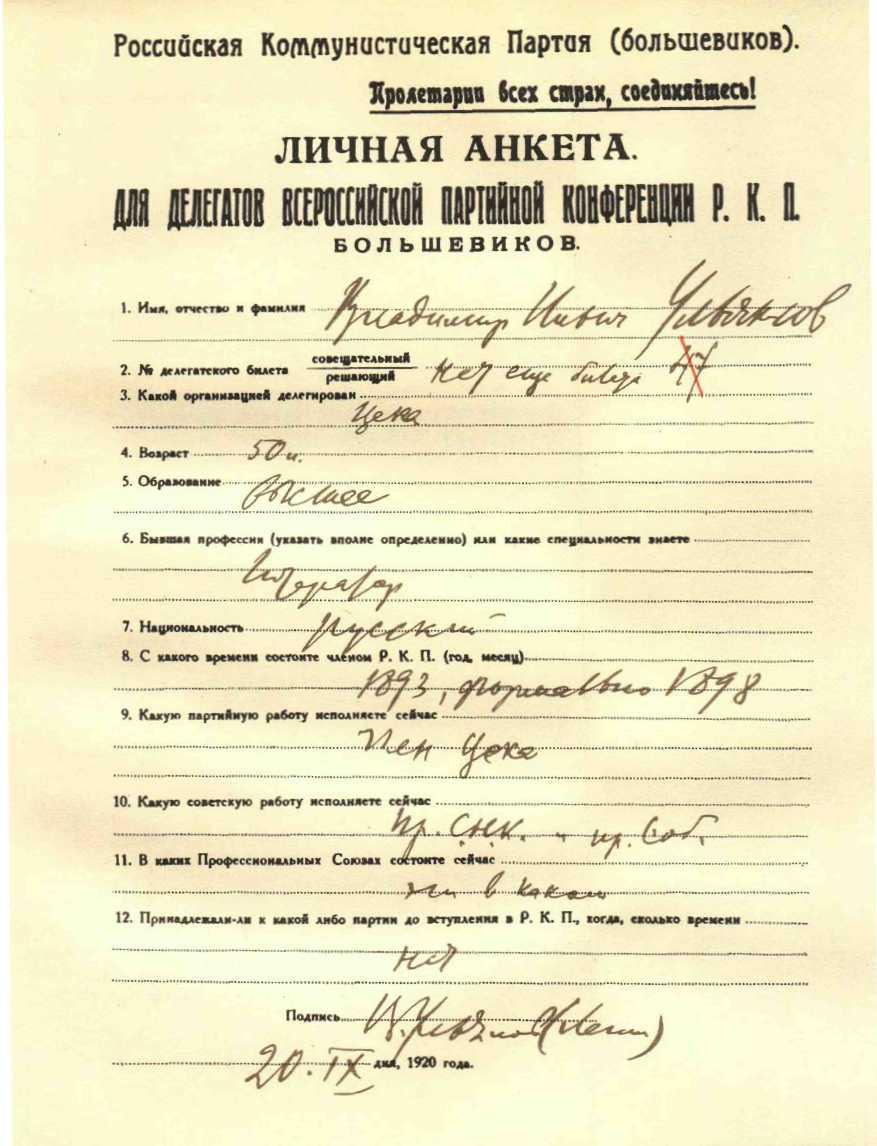 Российская Коммунистическая Партия (большевиков).
Пролетарии всех стран, соединяйтесь!
ЛИЧНАЯ АНКЕТА.
ДЛЯ ДЕЛЕГАТОВ ВСЕРОССИЙСКОЙ ПАРТИЙНОЙ КОНФЕРЕНЦИИ Р. К. П.
БОЛЬШЕВИКОВ.
1. Имя, отчество и фамилия Владимир Ильич Ульянов
2. № делегатского билета совещательный
решающий нет еще билета 47
3. Какой организацией делегирован
Цека
4. Возраст 50 л.
5. Образование
высшее
6. Бывшая профессия (указать вполне определенно) или какие специальности знаете
литератор
7. Национальность русский
8. С какого времени состоите членом Р. К. П. (год, месяц)
1893, формально 1898
9. Какую партийную работу исполняете сейчас
член Цека
10. Какую советскую работу исполняете сейчас
пр. С.Н.К. и пр. С.об.
11. В каких Профессиональных Союзах состоите сейчас
ни в каком
12. Принадлежали-ли к какой либо партии до вступления в Р. К. П., когда, сколько времени
нет
Подпись В. Ульянов (Ленин)
20. IX дня, 1920 года.